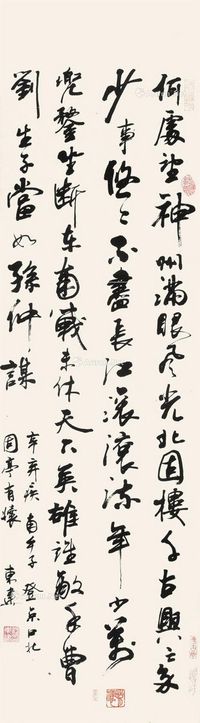 何處望神州滿眼風光北固樓千古興亡多
少事悠々不盡長江滾滾流年少萬
兜鍪坐斷東南戰未休天下英雄誰敵手曹
劉生子當如孫仲謀
辛弃疾南乡子登京口北
固亭有懷